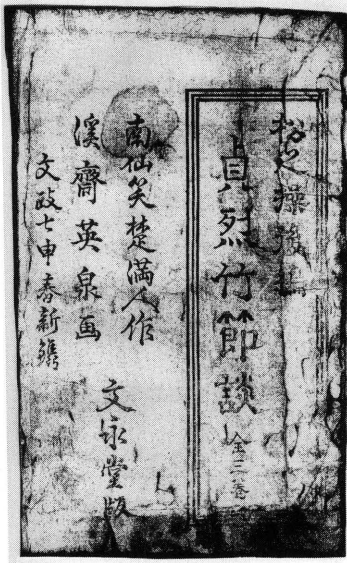 松之操後編
貞烈竹節談
全三巻
南仙笑楚満人作
溪齋英泉画
文政七申春新鐫
文永堂版